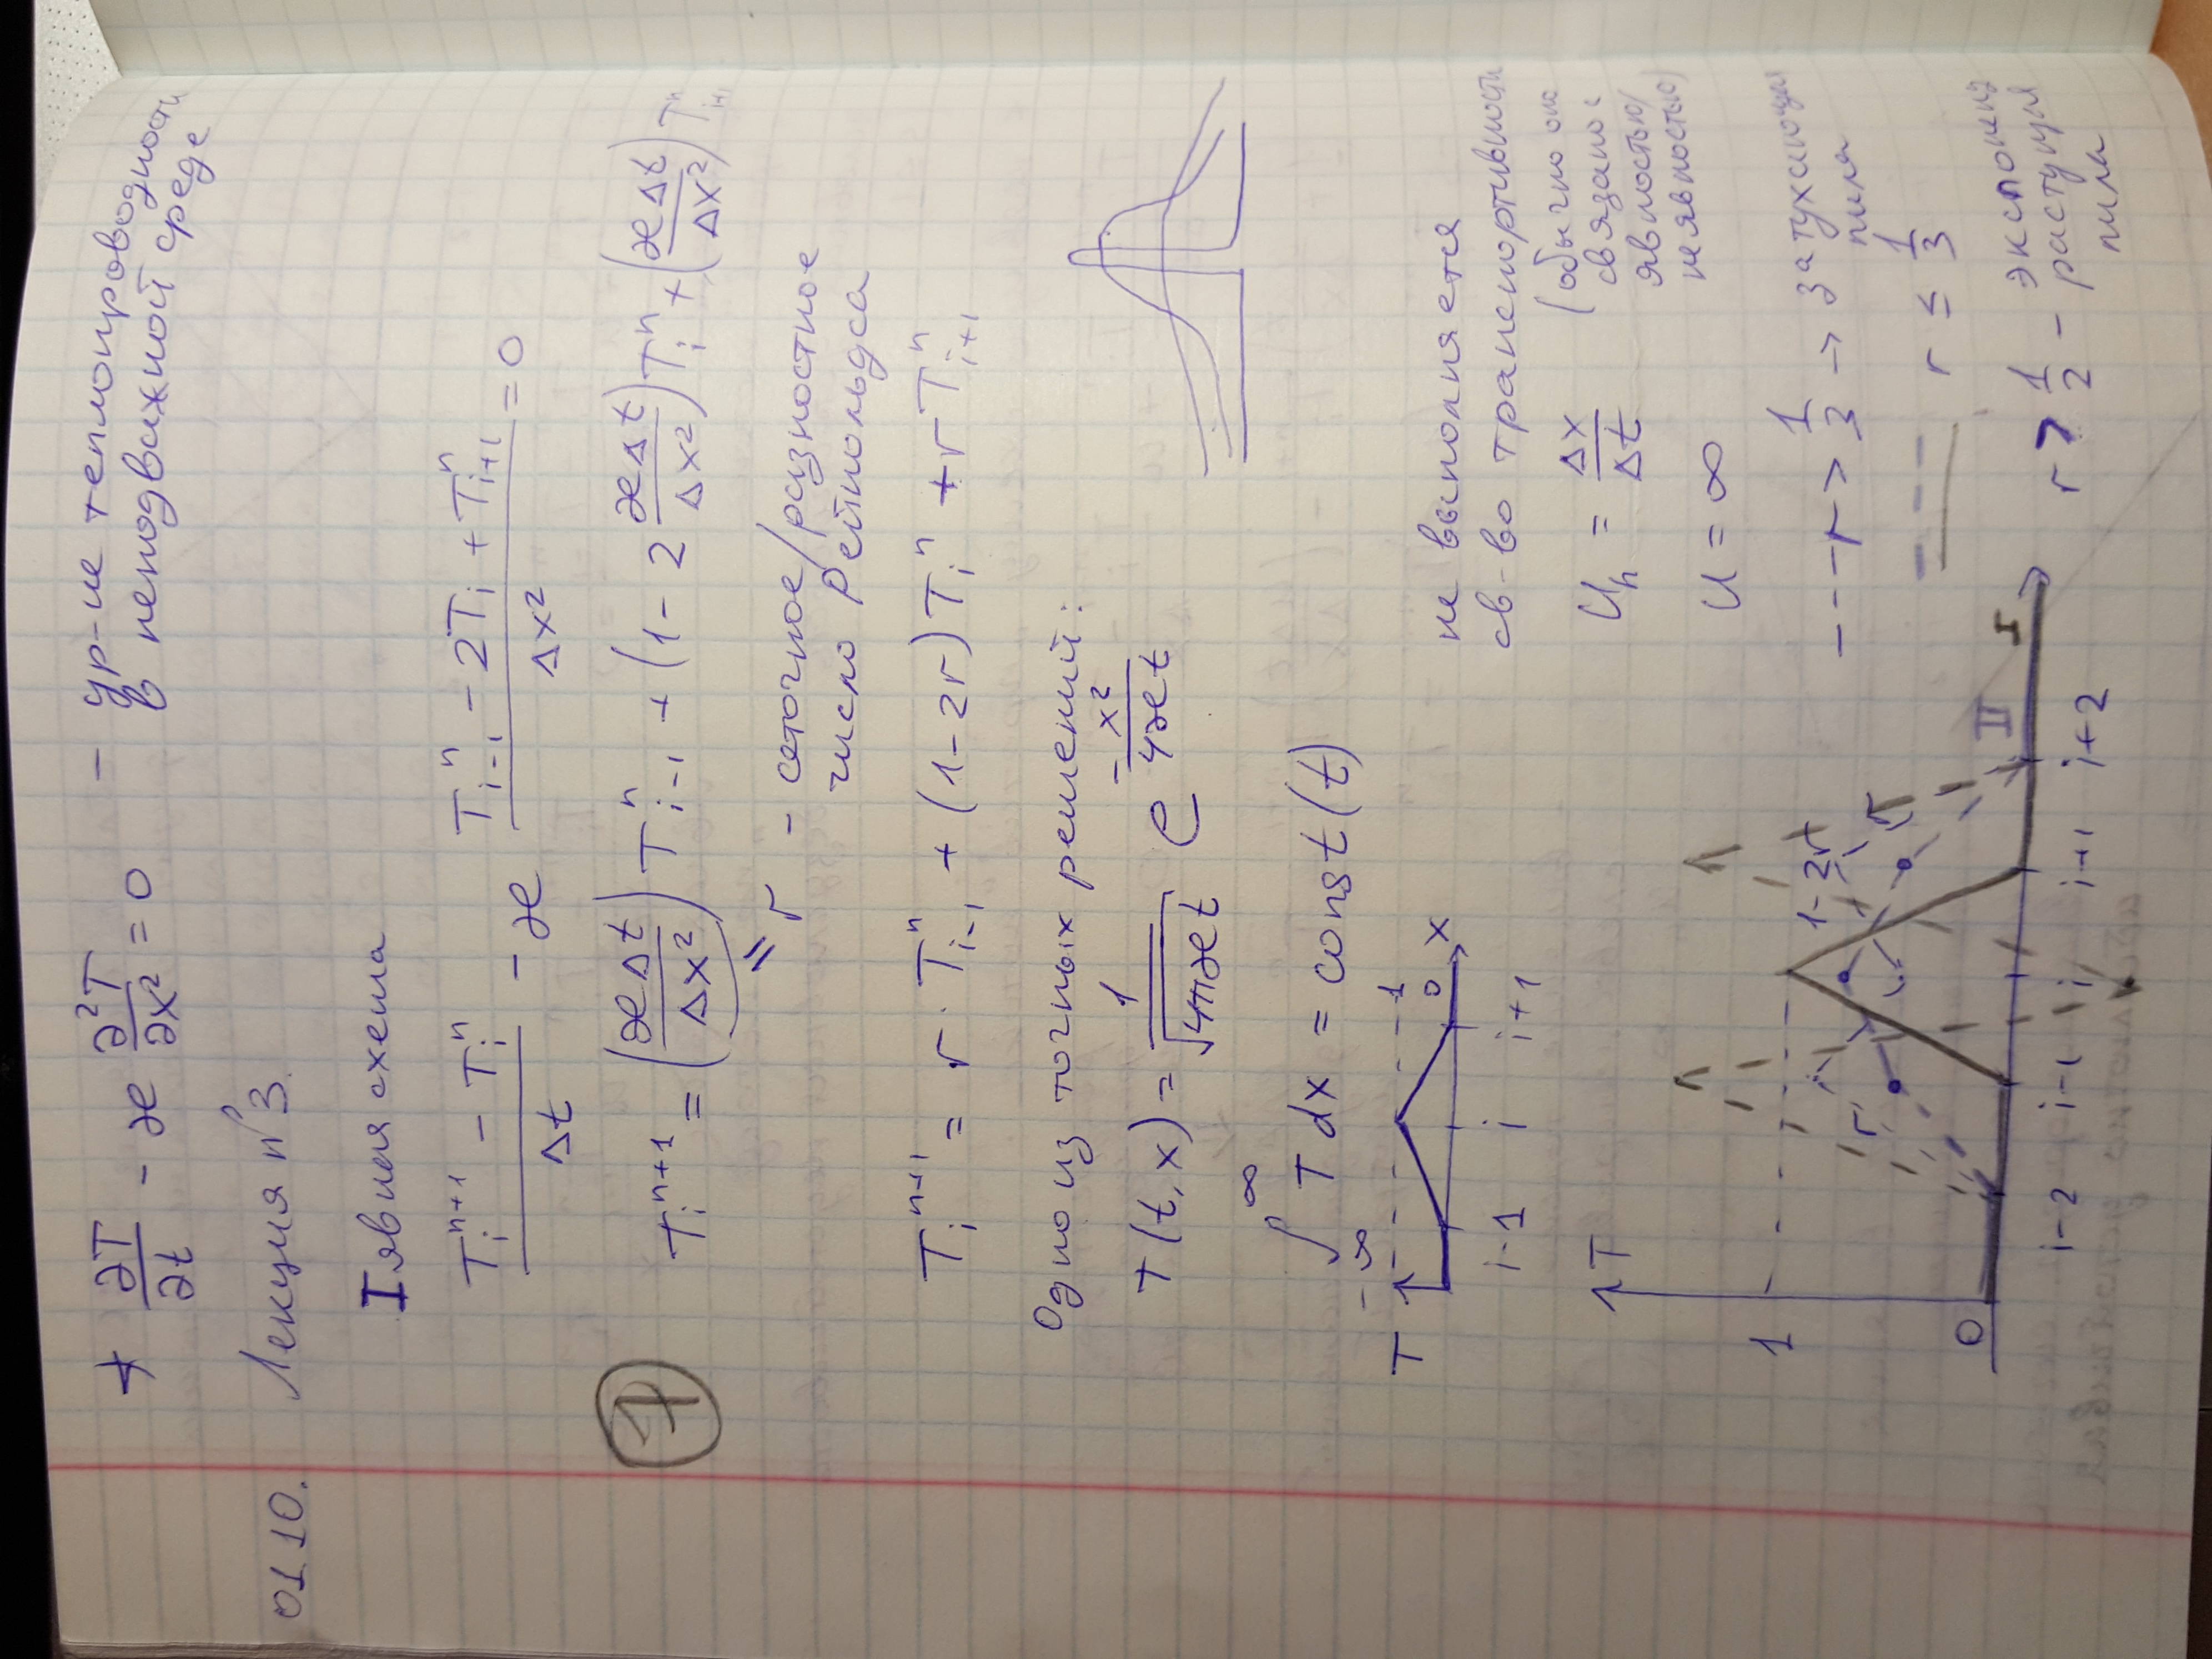 + ∂T/∂t - æ ∂²T/∂x² = 0 - ур-ие теплопроводности
в неподвижной среде
01.10. Лекция №3.
I явная схема
(T_i^{n+1} - T_i^n)/Δt - æ (T_{i-1}^n - 2T_i + T_{i+1}^n)/Δx² = 0
7
T_i^{n+1} = (æΔt/Δx²) T_{i-1}^n + (1 - 2 æΔt/Δx²) T_i^n + (æΔt/Δx²) T_{i+1}^n
= r - сеточное/разностное
число Рейнольдса
T_i^{n+1} = r · T_{i-1}^n + (1-2r) T_i^n + r T_{i+1}^n
Одно из точных решений:
T(t, x) = 1/√(4πæt) e^{-x²/4æt}
∫_{-∞}^{∞} T dx = const(t)
T 1
0 x
i-1 i i+1
не выполняется
св-во транспортивности
(обычно оно
связано с
явностью/
неявностью)
U_n = Δx/Δt
U = ∞
T
1
1-2r
r r
0
II I
i-2 i-1 i i+1 i+2
---- r > 1/3 → затухающая
пила
--- r ≤ 1/3
r > 1/2 - экспоненц
растущая
пила